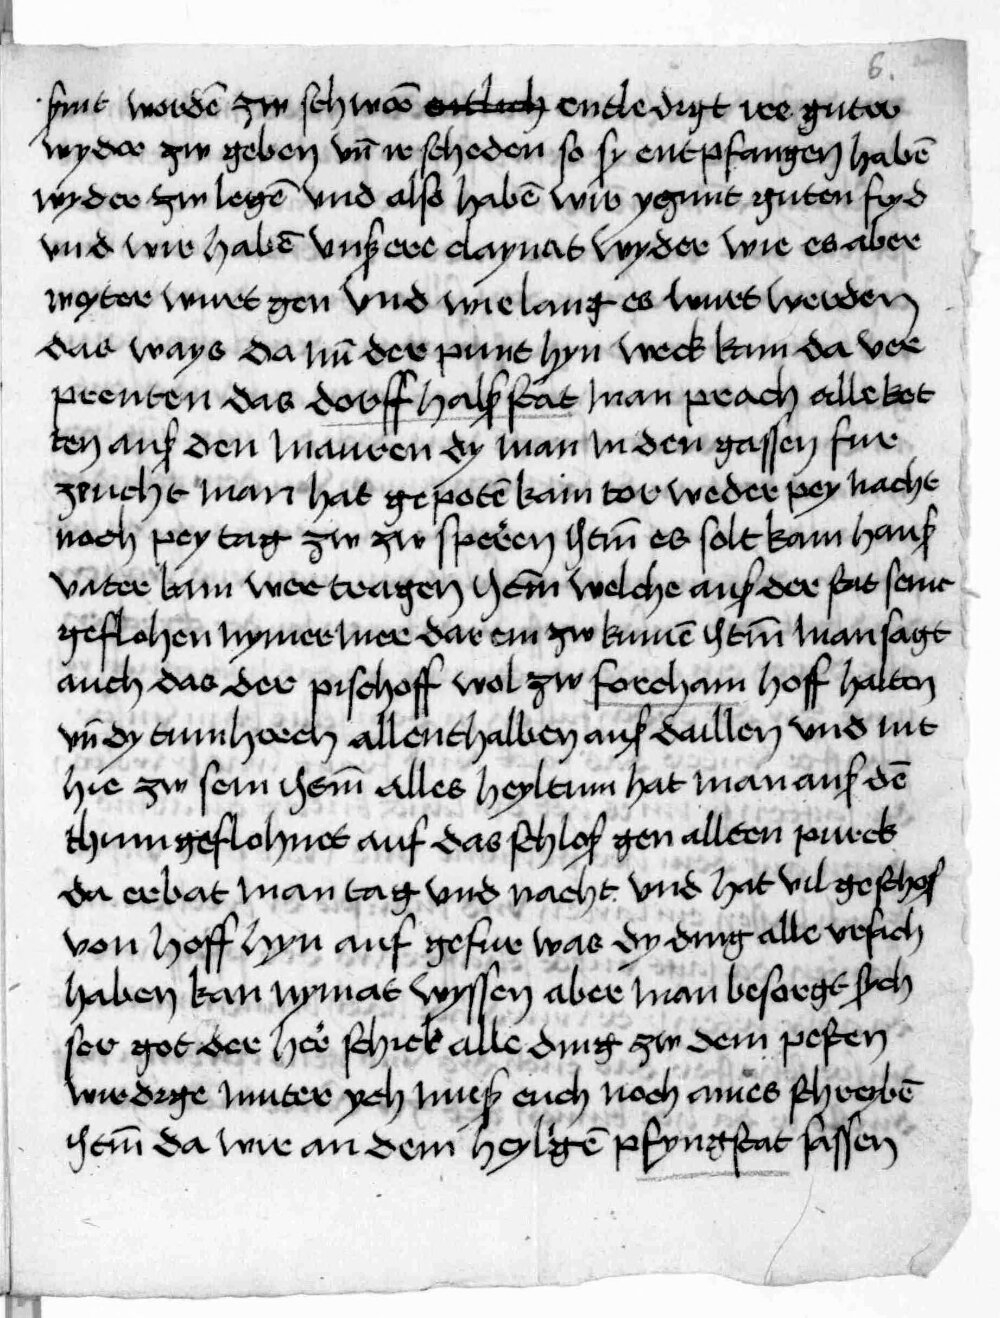 6.
sint wordē zw schwor entlich entledigt irer guter
wyder zw geben vn̄ ir scheden so sy entpfangen habē
wyder zw legē vnd also habē wir yzunt guten fryd
vnd wir habē vnßere claynat wyder wie es aber
wyter wurt gen vnd wie lang es wurt werden
das ways da nū der punt hyn weck kam da ver
prenten das dorff halßstat man prach alle ket
ten auß den mauren dy man in den gassen fur
zeucht man hat gepotē kain tor weder pey nacht
noch pey tag zw zw speren Jtm̄ es solt kain hauß
vater kain wer tragen Jtm̄ welche auß der stat seint
geflohen nymer mer dar ein zw kumē Jtm̄ man sagt
auch das der pischoff wol zw forcham hoff halten
vn̄ dy tumherch allenthalben auß daillen vnd nit
hie zw sein Jtm̄ alles heyltum hat man auß dē
thum geflohnet auf das schloß gen allten purck
da erbat man tag vnd nacht vnd hat vil geschoß
von hoff hyn auf gefur was dy ding alle vrsach
haben kan nymat wyssen aber man besorgt sych
ser got der her schick alle ding zw dem pesten
wirdige muter ych muß euch noch aines schreybē
Jtm̄ da wir an dem heylgē pfyngstat sassen